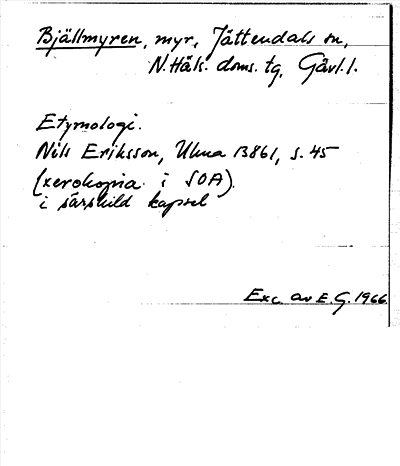 Bjällmyren, myr, Jättendals sn,
N.Häls. doms. tg, Gävl. l.
Etymologi.
Nils Eriksson, Ulma 13861, s. 45
(xerokopia i SOA).
i särskild kapsel
Exc. av E.G. 1966.